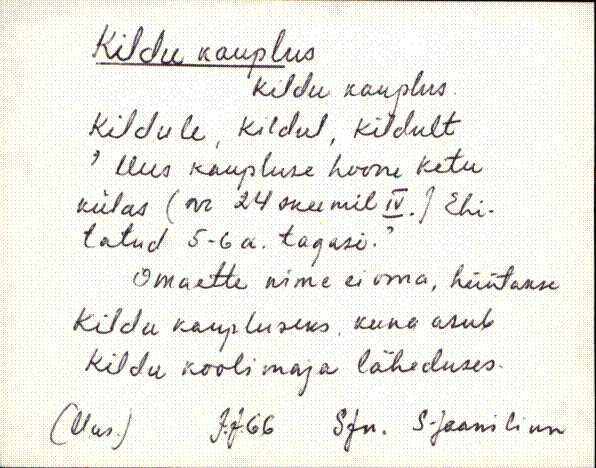 Kildu kauplus
Kildu kauplus.
Kildule, Kildul, Kildult
’ Uus kaupluse hoone Ketu
külas (nr 24 skeemil IV.) Ehi-
tatud 5-6 a. tagasi.’
Omaette nime ei oma, hüütakse
Kildu kaupluseks, kuna asub
Kildu koolimaja läheduses.
(Uus.) J.J.66 SJn. S-Jaani linn